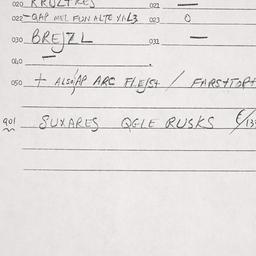 020 KRULTRES 021 —
022 -QAP MEL FUN ALTE 023 0
030 BREJZL 031 —
040 —
050 + ALSO/AP ARC FLEJST / FARSTTOPT
901 SUXARES QGLE RUSKS